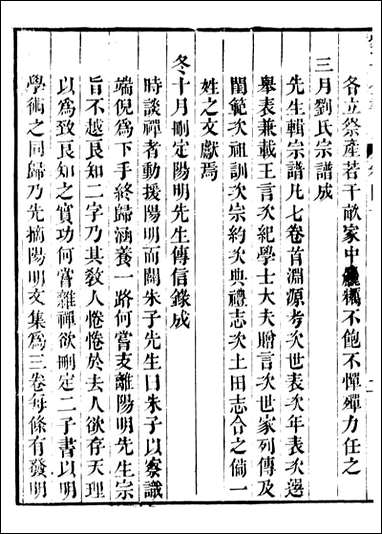 各立祭產若干畝家中 不飽不憚殫力任之
三月劉氏宗譜成
先生輯宗譜凡七卷首淵源考次世表次年表次選
舉表兼載王言次紀學士大夫贈言次世家列傳及
閨範次祖訓次宗約次典禮志次土田志合之倘一
姓之文獻焉
冬十月刪定陽明先生傳信錄成
時談禪者動援陽明而闢朱子先生曰朱子以察識
端倪爲下手終歸涵養一路何嘗支離陽明先生宗
旨不越良知二字乃其敎人惓惓於去人欲存天理
以爲致良知之實功何嘗雜禪欲刪定二子書以明
學術之同歸乃先摘陽明文集爲三卷每條有發明